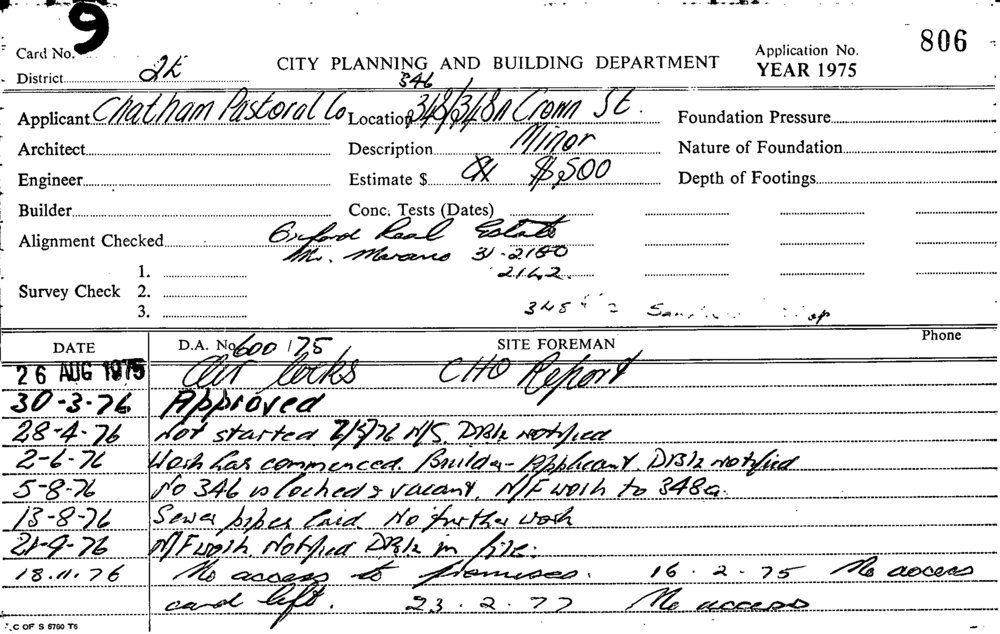 9
Card No.
806
District 2E
CITY PLANNING AND BUILDING DEPARTMENT
Application No.
YEAR 1975
346
Applicant Chatham Pastoral Co
Location 348/348A Crown St.
Foundation Pressure
Architect
Description Minor
Nature of Foundation
Engineer
Estimate $ $500
Depth of Footings
Builder
Conc. Tests (Dates)
Alignment Checked
Oxford Real Estate
Mr. Marano 31-2180
2162
Survey Check
1.
2.
3.
348
DATE
D.A. No. 600/75
SITE FOREMAN
Phone
26 AUG 1975 Air locks CHO Report
30-3-76 Approved
28-4-76 Not started 7/5/76 N/S. DBIR notified
2-6-76 Work has commenced. Builder - Applicant. DBIR notified
5-8-76 No 346 is locked & vacant. N/F work to 348a.
13-8-76 Sewer pipes laid No further work
21-9-76 N/F work Notified DBIR in file.
18.11.76 No access to premises. 16.2.75 No access
card left. 23.2.77 No access
C OF S 5750 T5